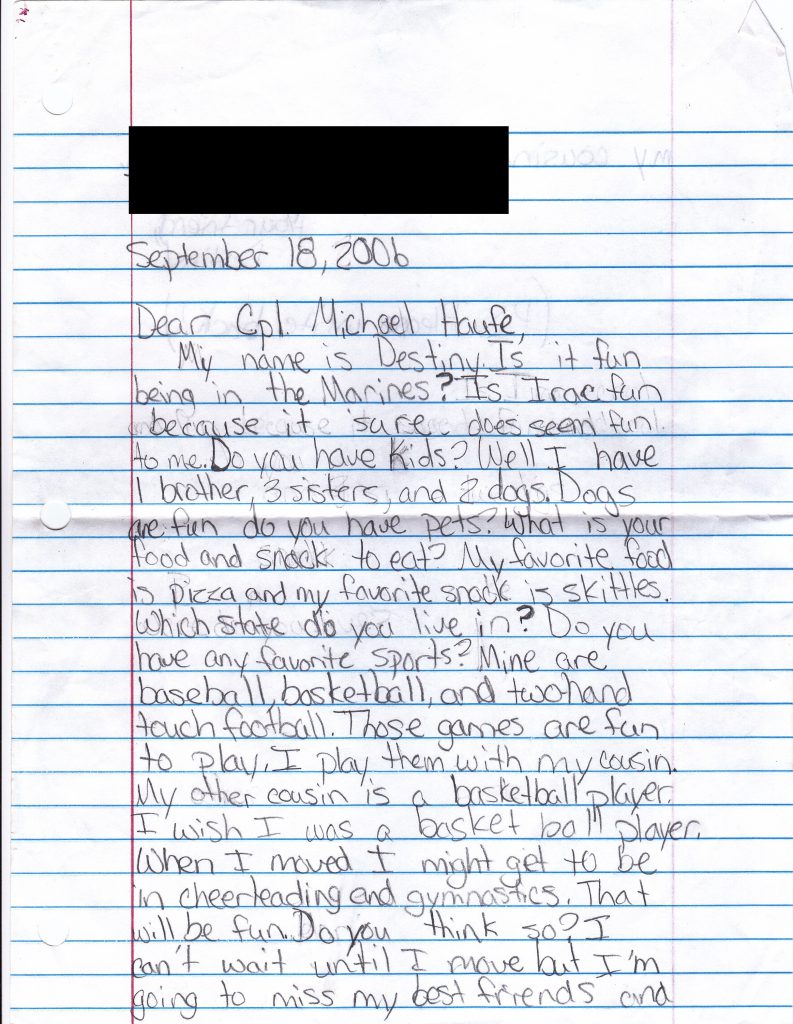 September 18, 2006
Dear Cpl. Michael Haufe,
My name is Destiny. Is it fun
being in the Marines? Is Iraq fun
because it sure does seem fun
to me. Do you have kids? Well I have
1 brother, 3 sisters, and 2 dogs. Dogs
are fun do you have pets? What is your
food and snack to eat? My favorite food
is pizza and my favorite snack is skittles.
Which state do you live in? Do you
have any favorite sports? Mine are
baseball, basketball, and two hand
touch football. Those games are fun
to play. I play them with my cousin.
My other cousin is a basketball player.
I wish I was a basket ball player.
When I moved I might get to be
in cheerleading and gymnastics. That
will be fun. Do you think so? I
can't wait until I move but I'm
going to miss my best friends and